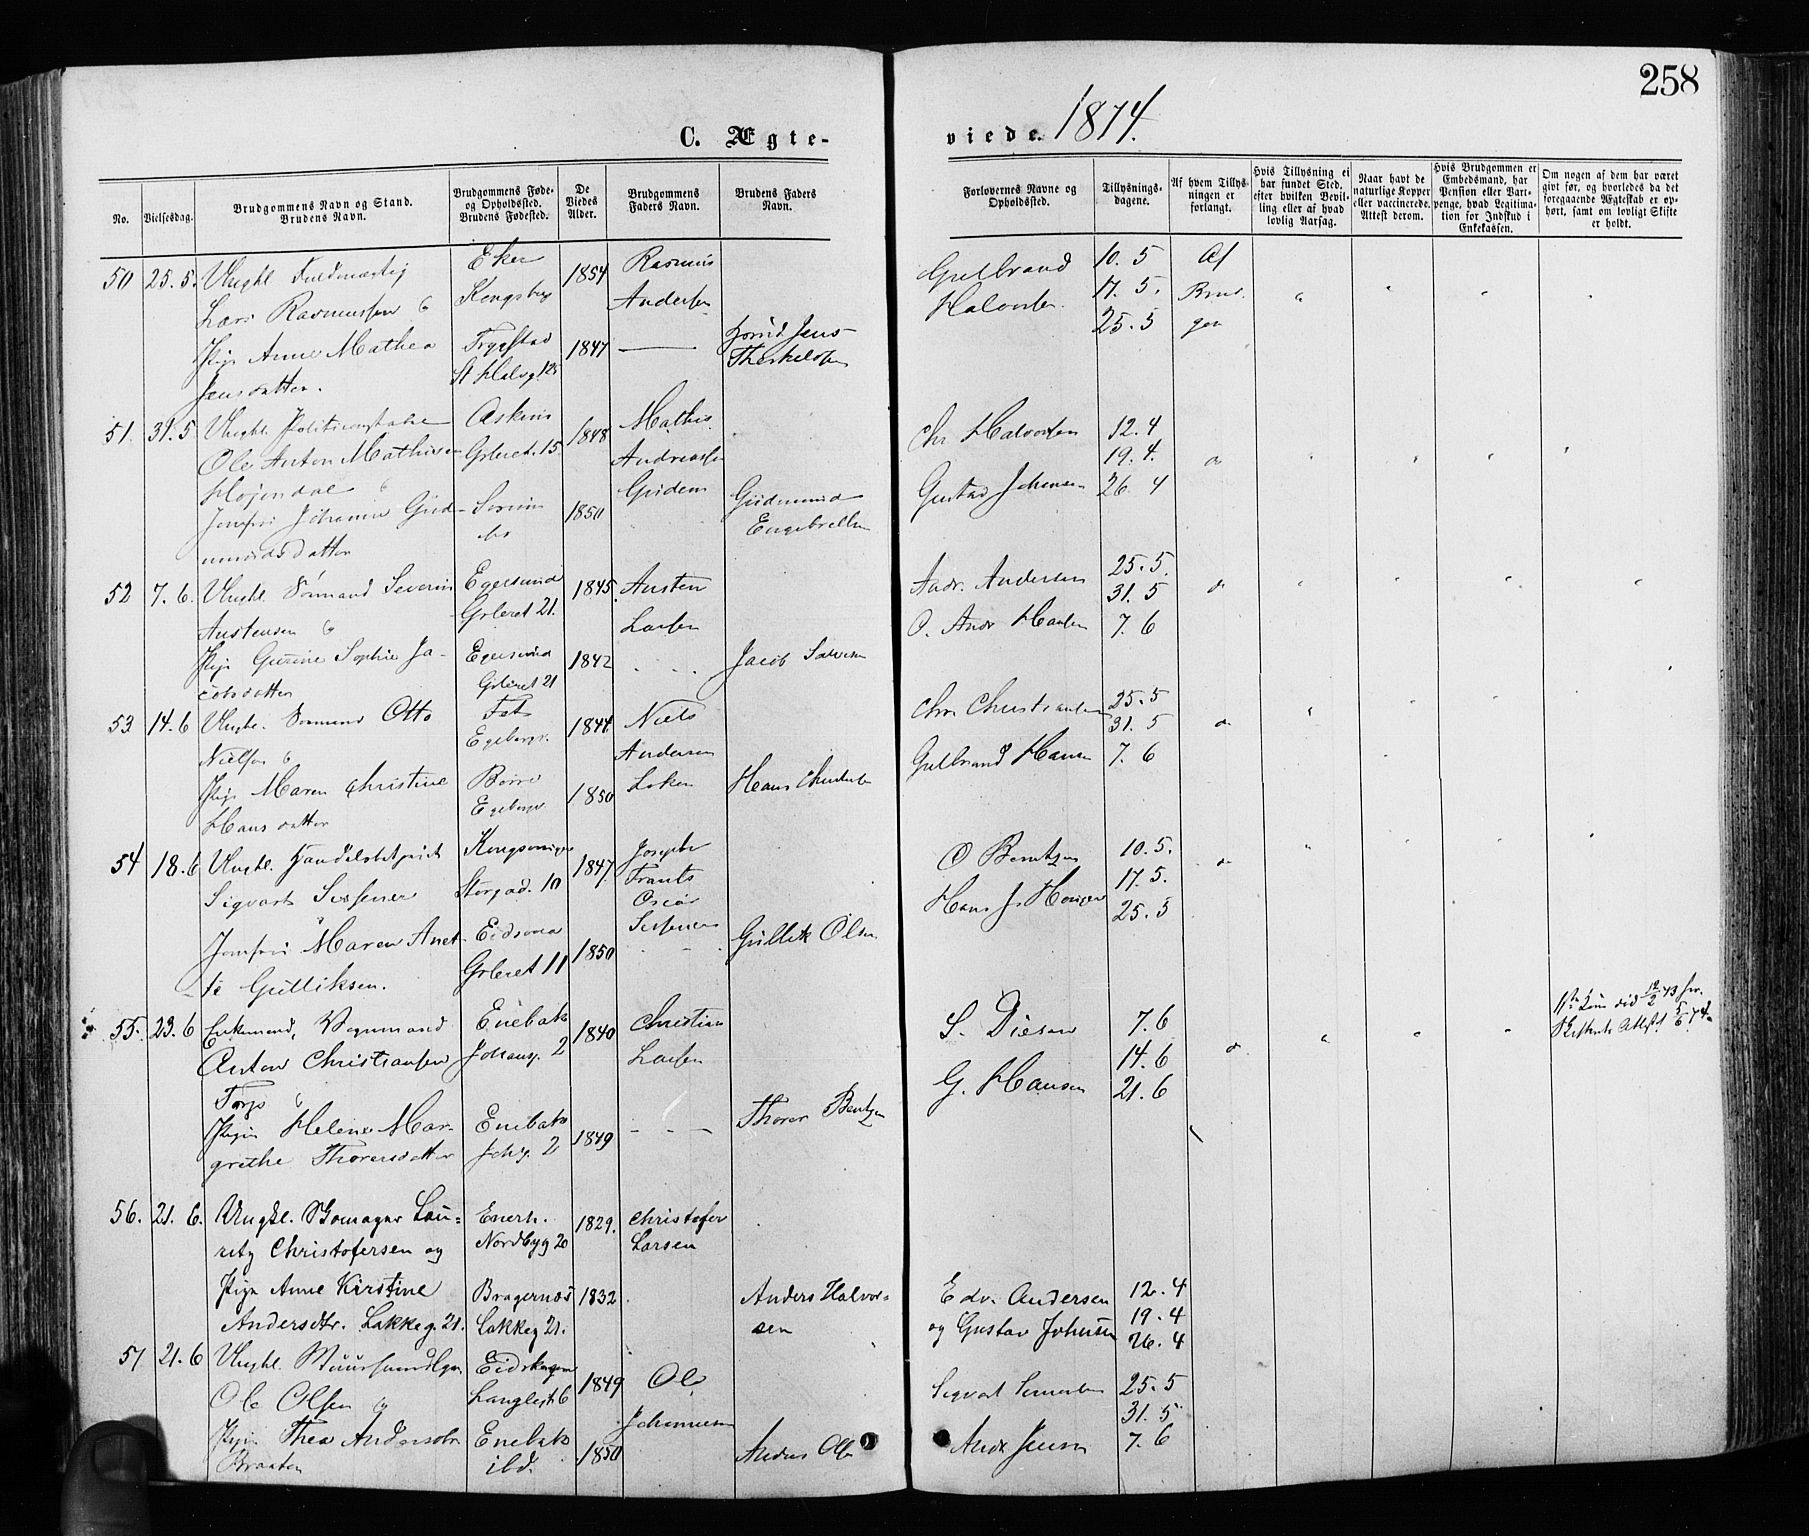 258
C. Ægte-
viede. 1874.
No.
Vielsesdag.
Brudgommens Navn og Stand.
Brudens Navn.
Brudgommens Føde-
og Opholdssted.
Brudens Fødested.
De
Viedes
Alder.
Brudgommens
Faders Navn.
Brudens Faders
Navn.
Forlovernes Navne og
Opholdssted.
Tillysnings-
dagene.
Af hvem Tillys-
ningen er
forlangt.
Hvis Tillysning ei
har fundet Sted,
efter hvilken Bevil-
ling eller af hvad
lovlig Aarsag.
Naar havt de
naturlige Kopper
eller vaccinerede.
Attest derom.
Hvis Brudgommen er
Embedsmand, har
Pension eller Vart-
penge, hvad Legitima-
tion for Indskud i
Enkekassen.
Om nogen af dem har været
givt før, og hvorledes da det
foregaaende Ægteskab er op-
hørt, samt om lovligt Skifte
er holdt.
50 25. 5. Ungkl. Fuldmægtig Eker 1854 Rasmus
Lars Rasmussen Kongsberg Andersen
Pige Anne Mathea 1847 Jens
Jensdatter.
Gulbrand 10. 5 Af
Halvorsen 17. 5. Brud-
25. 5 gom
51. 31. 5 Ungkl. Politikonstabel Askim 1848 Mathis
Ole Anton Mathisen Grleret. 15. Andreassen
Højendal
Jomfru Johanne Gud- 1850 Gudmund
mundsdatter Engebretsen
Chr Halvorsen 12. 4
19. 4.
Gustav Johnsen 26. 4
52 7. 6. Ungkl. Sømand Severin Egersund 1845. Austen
Austensen Grleret 21. Larsen
Pige Gurine Sophie Ja- Egersund 1842 Jacob
cobsdatter Grleret 21
Andr. Andersen 25. 5.
31. 5
O. Andr Hansen 7. 6
53 14. 6 Ungk. Sømand Otto Niels
Nielsen Egebergv. Andersen
Pige Maren Christine Borre 1850 Hans
Hansdatter Egebergv
Chr Christiansen 25. 5
31. 5
Gulbrand Hansen 7. 6
54 18. 6 Ungkl. Handelsbetjent Kongsvinger 1847. Joseph
Sigvart Storgad. 10 Frants
Oscar
Jomfru Maren Anet- Eidsvold 1850 Gullik Olsen
te Gulliksen. Grleret 11
O Berntzen 10. 5.
Hans J. 17. 5.
25. 5
55. 23. 6 Enkemand, Vognmand Enebak 1840 Christian
Anton Christiansen Johansg. 2 Larsen
Torp
Pigen Helene Mar- Enebak 1849 Thorer Berntzen
grethe Thorersdatter Johsg. 2
S. Diesen 7. 6
14. 6
G. Hansen 21. 6
1ste Kone død 12/2 73 for.
Skifterets Attest 5/6 74
56. 21. 6. Ungkl. Skomager Lau- Enerh. 1829. Christofer
ritz Christofersen og Nordbyg 20 Larsen
Pige Anne Kirstine Bragernæs 1832 Anders Halvor-
Andersdtr. Lakkeg. 21. Lakkeg 21. sen
Edv. Andersen 12. 4
og Gustav Johnsen 19. 4
26. 4
57 21. 6 Ungkl. Muursvend Eidskogen 1849 Ole
Ole Olsen Langlest 6 Johannesen
Pigen Thea Andersdtr Enebak 1850 Anders Olsen
Braaten ibd.
Sigvat 25. 5
31. 5
Andr Jensen 7. 6